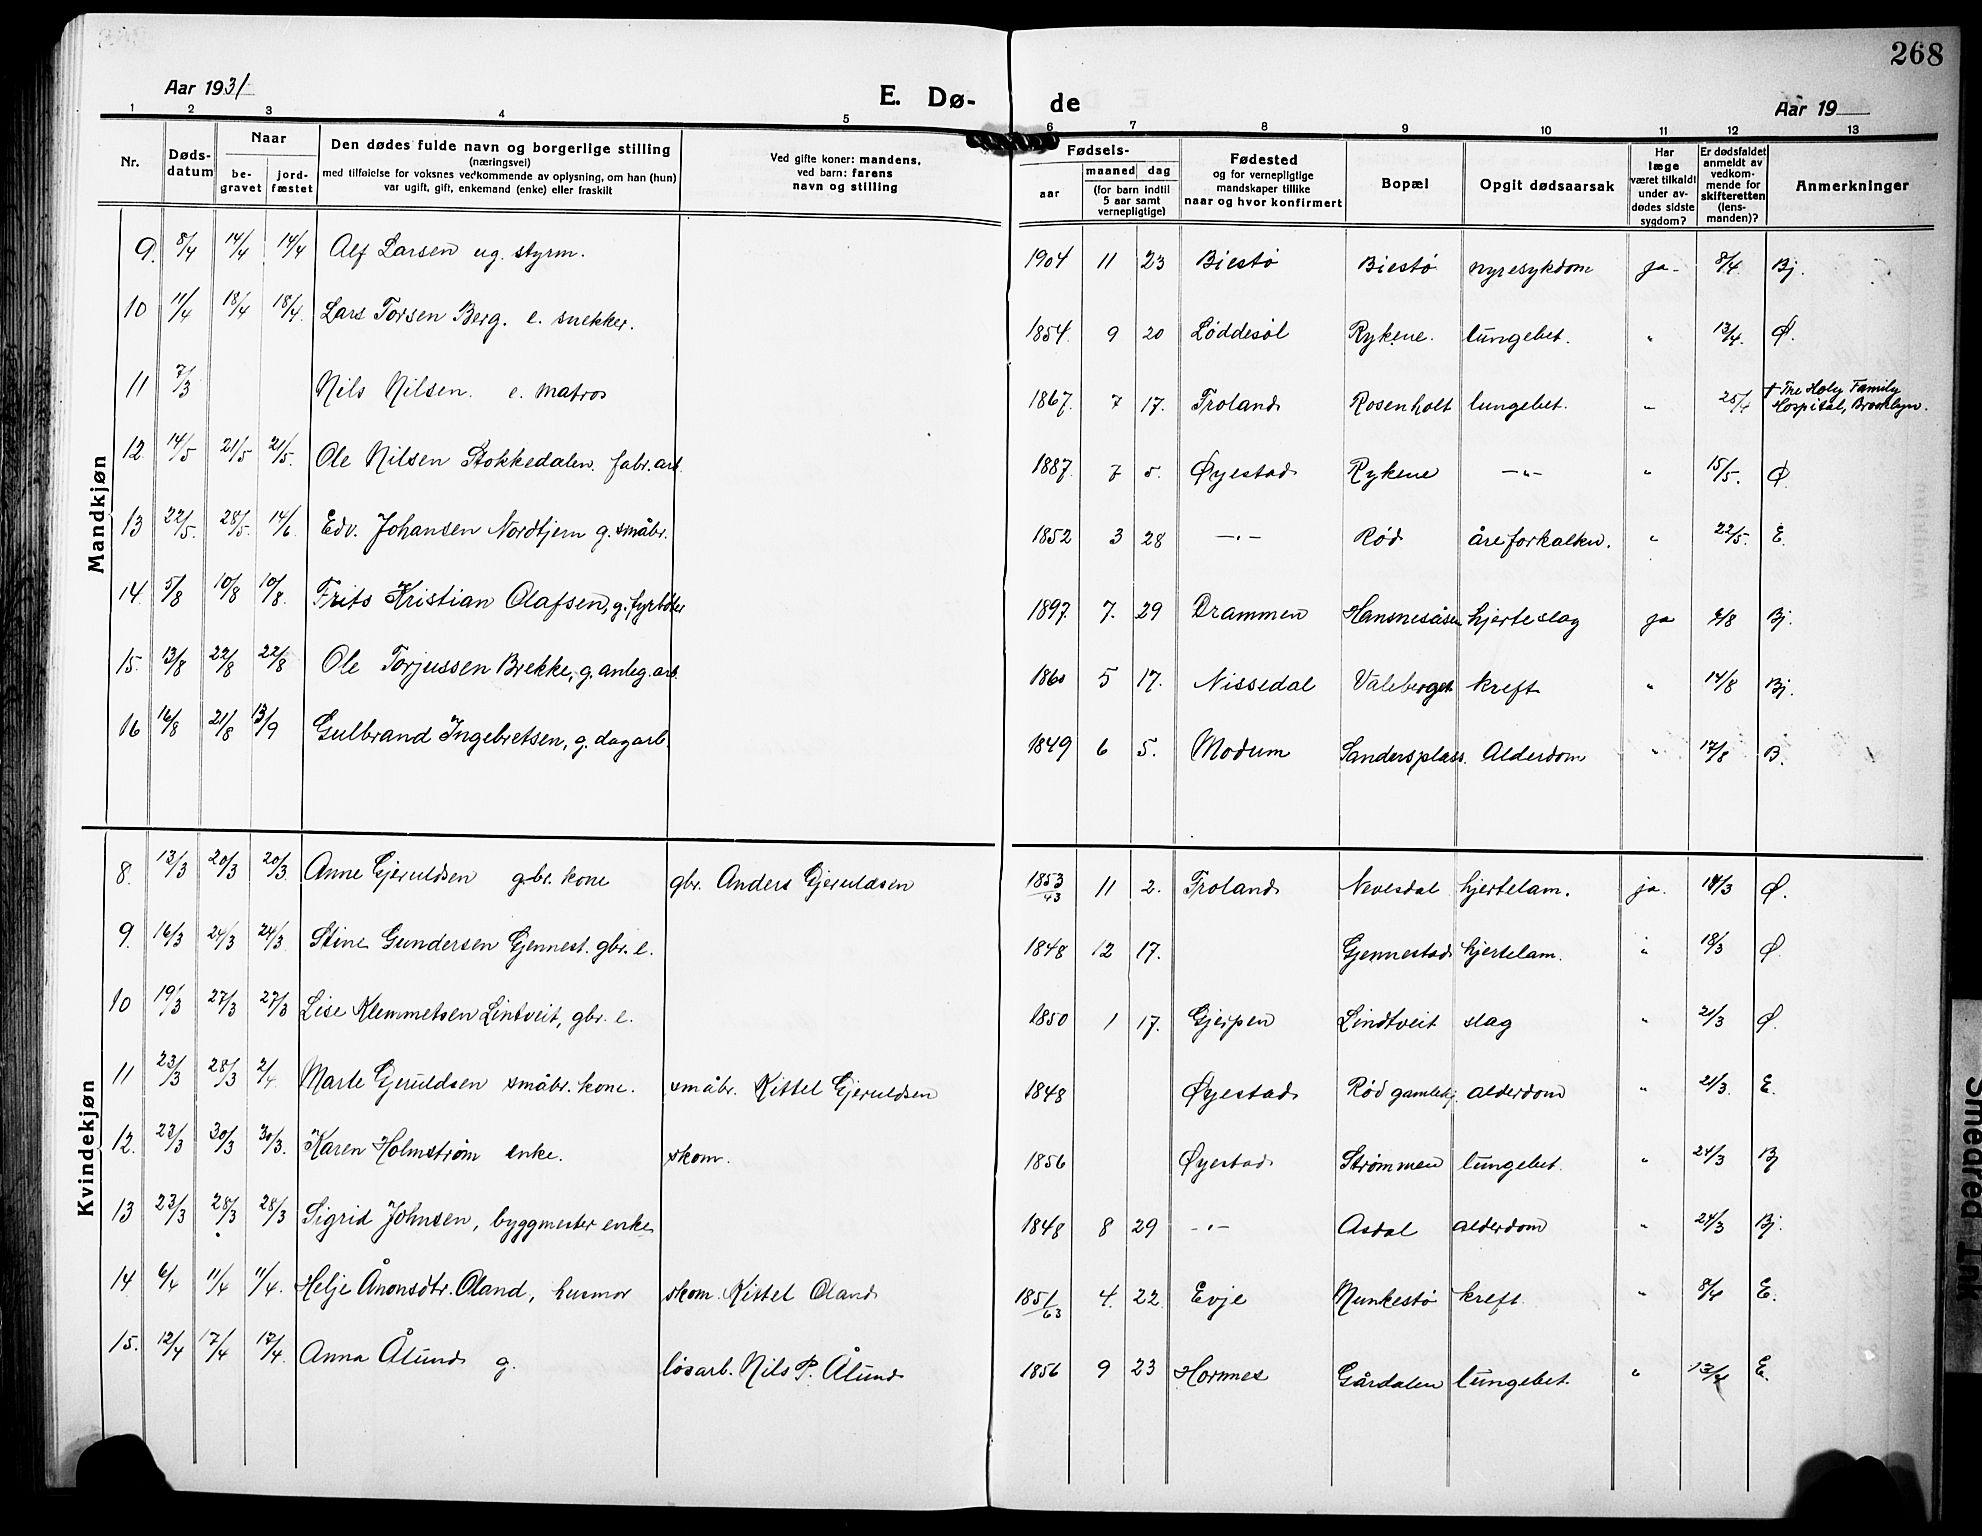 268
Aar 1931
E. Dø-
de
Aar 19
1 2 3 4 5 6 7 8 9 10 11 12 13
Nr.
Døds-
datum
Naar
be-
gravet
jord-
fæstet
Den dødes fulde navn og borgerlige stilling
(næringsvei)
med tilføielse for voksnes vedkommende av oplysning, om han (hun)
var ugift, gift, enkemand (enke) eller fraskilt
Ved gifte koner: mandens,
ved barn: farens
navn og stilling
Fødsels-
aar
maaned dag
(for barn indtil
5 aar samt
vernepligtige)
Fødested
og for vernepligtige
mandskaper tillike
naar og hvor konfirmert
Bopæl
Opgit dødsaarsak
Har
læge
været tilkaldt
under av-
dødes sidste
sygdom?
Er dødsfaldet
anmeldt av
vedkom-
mende for
skifteretten
(lens-
manden)?
Anmerkninger
Mandkjøn
9. 8/4 14/4 14/4 Alf Larsen ug. styrm. 1904 11 23 Biestø Biestø nyresykdom ja- 8/4 Bj.
10 11/4 18/4 18/4. Lars Torsen Berg. e. snekker. 1854. 9 20 Løddesøl Rykene. lungebet. " 13/4. Ø.
11 7/3 Nils Nilsen. e. matros 1867. 7 17. Froland Rosenholt lungebet. " 25/4 † The Holy Family
Hospital, Brooklyn.
12. 14/5 21/5 21/5. Ole Nilsen Stokkedalen. fabr.arb. 1887. 7 5. Øyestad Rykene —"— " 15/5. Ø.
13 22/5. 28/5. 14/6 Edv. Johansen Nordtjern g. småbr. 1852 3 28 —"— Rød åreforkalkn. " 22/5. E.
14. 5/8 10/8 10/8. Frits Kristian Olafsen, g. fyrbøter 1897. 7. 29 Drammen Hansnesåsen hjerteslag ja 6/8 Bj.
15. 13/8 22/8 22/8 Ole Torjussen Brekke, g. anleg.arb. 1860 5 17. Nissedal Våleberget kreft " 14/8 Bj.
16 16/8 21/8 13/9 Gulbrand Ingebretsen, g. dagarb. 1849 6 5. Modum Sandersplass. Alderdom " 17/8 B.
Kvindekjøn
8. 13/3 20/3 20/3. Anne Gjeruldsen gbr. kone gbr. Anders Gjeruldsen 1853/43 11 2. Froland Nevesdal hjertelam. ja. 14/3 Ø.
9. 16/3 24/3 24/3. Stine Gundersen Gjennest. gbr. e. 1848 12 17. Gjennestad hjertelam. " 18/3 Ø.
10 19/3 27/3 27/3 Lise Klemmetsen Lintveit, gbr. e. 1850 1 17. Gjerpen Lindtveit slag " 20/3 Ø.
11 23/3 28/3 2/4 Marte Gjeruldsen småbr. kone. småbr. Kittel Gjeruldsen 1848 Øyestad Rød gamlehj. alderdom " 21/3. E.
12. 23/3 30/3 30/3. Karen Holmstrøm enke. skom. 1856 Øyestad Strømmen lungebet. " 24/3 Bj
13 23/3 28/3 28/3 Sigrid Johnsen, byggmester enke 1848 8 29 —"— Asdal alderdom " 24/3 Bj.
14. 6/4 11/4 11/4. Helje Ånonsdtr. Oland, husmor skom. Kittel Oland 1851/63 4. 22 Evje Munkestø kreft. " 8/4 E.
15. 12/4 17/4 17/4. Anna Ålund g. løsarb. Nils P. Ålund 1856 9 23 Hornnes Gårdalen lungebet. " 13/4 E.